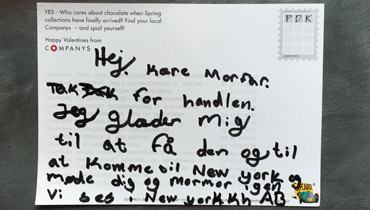 YES - Who cares about chocolate when Spring
collections have finally arrived!? Find your local
Companys - and spoil yourself!
Happy Valentines from
COMPANYS
PDK
Hej, kare Morfar.
Tak for handlen.
Jeg glader mig
til at få den og til
at komme til New york og
møde dig og mormor igen
Vi ses i New york kh AB